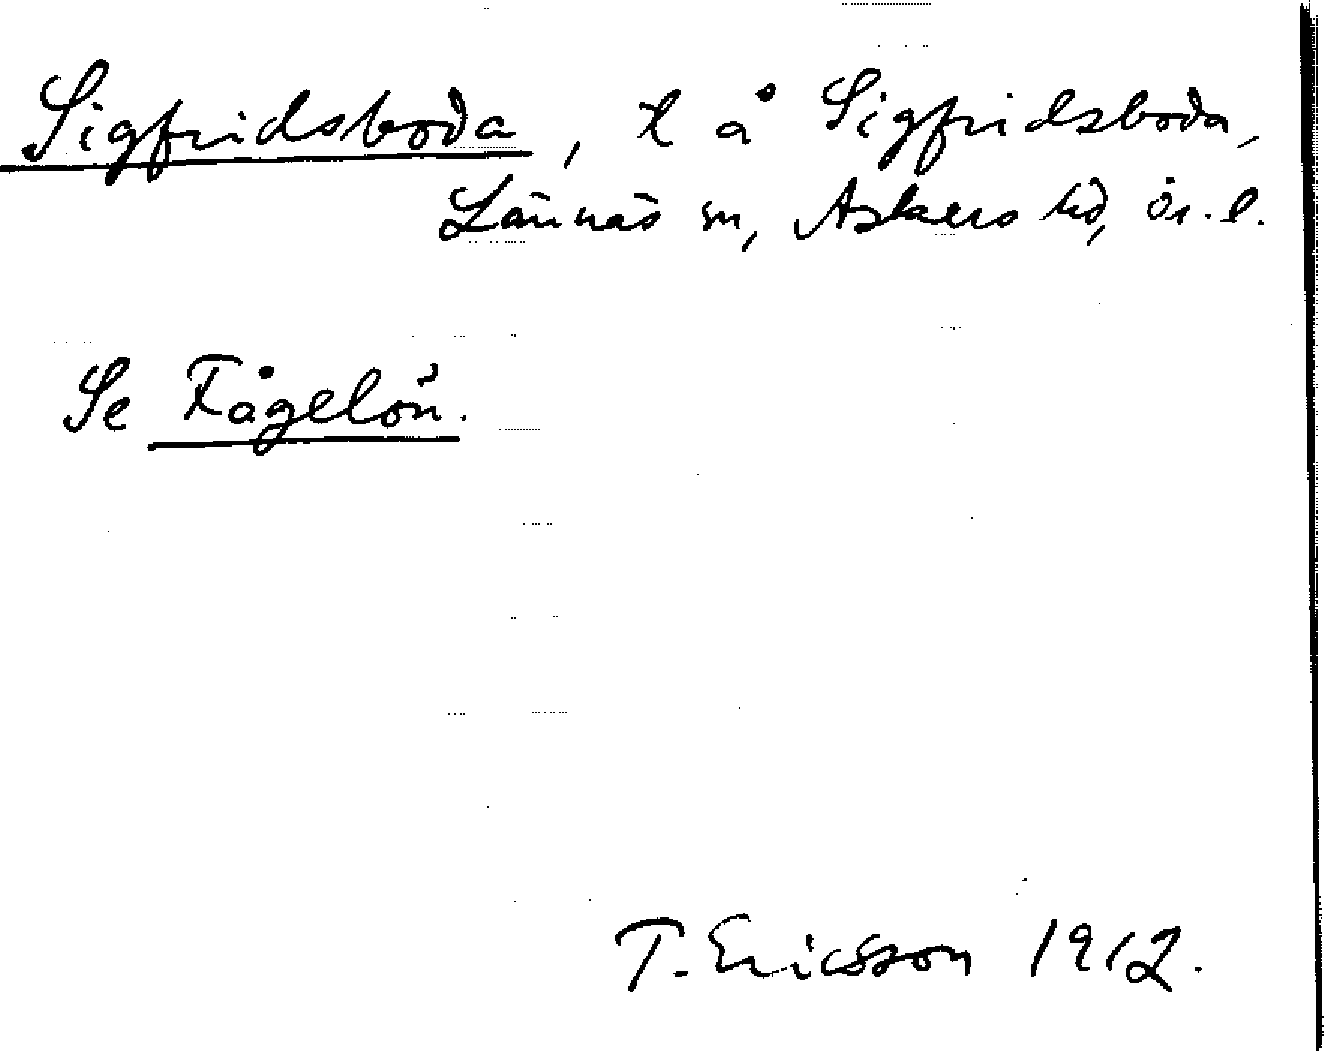 Sigfridsboda, t å Sigfridsboda,
Lännäs sn, Askers hd, ör. l.
Se Fågelön.
T. Ericsson 1912.